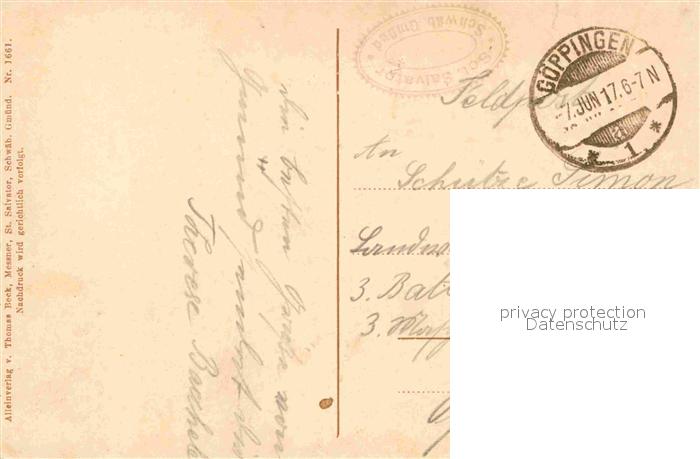 Alleinverlag v. Thomas Beck, Messner, St. Salvator, Schwäb. Gmünd. Nr. 1661.
Nachdruck wird gerichtlich verfolgt.
Die besten Grüße von
Gmünd sendet Dir
Therese
St. Salvator
Schwäb. Gmünd
GÖPPINGEN
-7.JUN 17.6-7 N
a
* 1. *
Feldpost
An
Schütze Simon
3.
3.
privacy protection
Datenschutz